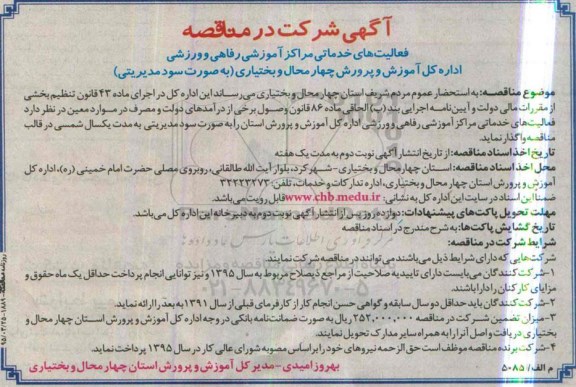 آگهی شرکت در مناقصه
فعالیت‌های خدماتی مراکز آموزشی رفاهی و ورزشی
اداره کل آموزش و پرورش چهارمحال و بختیاری (به صورت سود مدیریتی)
موضوع مناقصه: به استحضار عموم مردم شریف استان چهارمحال و بختیاری می‌رساند این اداره کل در اجرای ماده ۴۳ قانون تنظیم بخشی
از مقررات مالی دولت و آیین‌نامه اجرایی بند (ب) الحاقی ماده ۸۶ قانون وصول برخی از درآمدهای دولت و مصرف در موارد معین در نظر دارد
فعالیت‌های خدماتی مراکز آموزشی رفاهی و ورزشی اداره کل آموزش و پرورش استان را به صورت سود مدیریتی به مدت یکسال شمسی در قالب
مناقصه واگذار نماید.
تاریخ اخذ اسناد مناقصه: از تاریخ انتشار آگهی نوبت دوم به مدت یک هفته
محل اخذ اسناد مناقصه: استان چهارمحال و بختیاری - شهرکرد، بلوار آیت الله طالقانی، روبروی مصلی حضرت امام خمینی (ره)، اداره کل
آموزش و پرورش استان چهارمحال و بختیاری، اداره تدارکات و خدمات، تلفن: ۳۲۲۲۳۲۷۳
ضمنا این اسناد در سایت این اداره کل به نشانی: www.chb.medu.ir قابل رویت می‌باشد.
مهلت تحویل پاکت‌های پیشنهادات: دوازده روز پس از انتشار آگهی نوبت دوم به دبیرخانه این اداره کل می‌باشد.
تاریخ گشایش پاکت‌ها: به شرح مندرج در اسناد مناقصه
شرایط شرکت در مناقصه:
شرکت‌هایی که دارای شرایط ذیل می‌باشند می‌توانند در مناقصه شرکت نمایند.
۱-شرکت کنندگان می‌بایست دارای تاییدیه صلاحیت از مراجع ذیصلاح مربوط به سال ۱۳۹۵ و نیز توانایی انجام پرداخت حداقل یک ماه حقوق و
مزایای کارکنان را دارا باشند.
۲-شرکت کنندگان باید حداقل دو سال سابقه و گواهی حسن انجام کار از کارفرمای قبلی از سال ۱۳۹۱ به بعد را ارائه نماید.
۳-میزان تضمین شرکت در مناقصه ۲۵۲,۰۰۰,۰۰۰ ریال به صورت ضمانت نامه بانکی در وجه اداره کل آموزش و پرورش استان چهارمحال و
بختیاری دریافت و اصل آنرا به همراه سایر مدارک تحویل نمایند.
۴-شرکت برنده مناقصه موظف است حق الزحمه نیروهای خود را بر اساس مصوبه شورای عالی کار در سال ۱۳۹۵ پرداخت نماید.
بهروز امیدی - مدیر کل آموزش و پرورش استان چهارمحال و بختیاری
م الف / ۵۰۸۵
۰۲۱-۸۸۳۴۹۶۷۰-۵